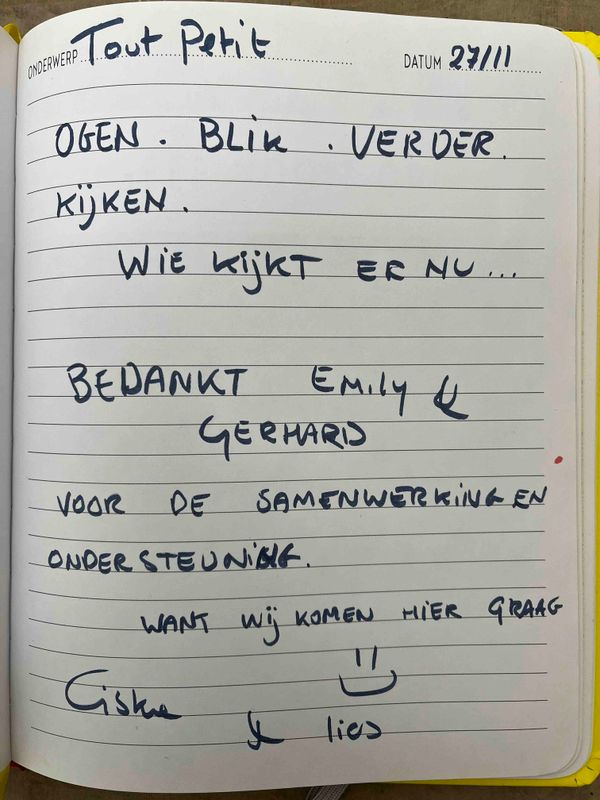 ONDERWERP Tout Petit DATUM 27/11
OGEN. BLIK. VERDER.
KIJKEN.
WIE KIJKT ER NU...
BEDANKT Emily &
GERHARD
VOOR DE SAMENWERKING EN
ONDERSTEUNING.
WANT WIJ KOMEN HIER GRAAG
Ciska
& lies